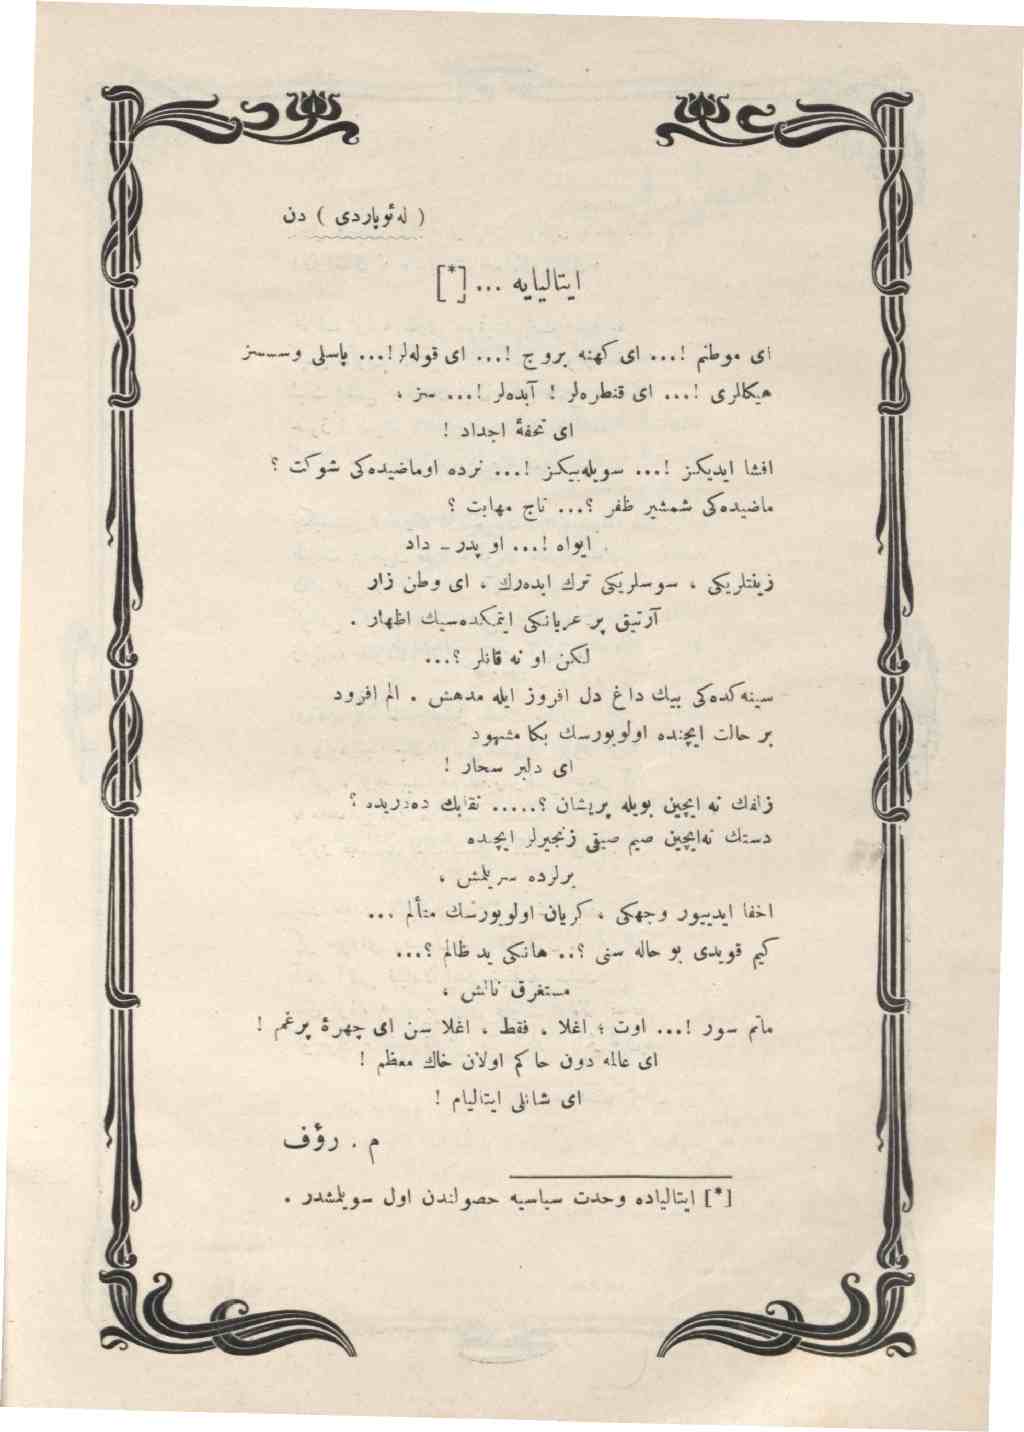 ( له‌ئوپاردی ) دن
ایتالیایه ... [*]
ای موطنم !... ای کهنه بروج !... ای قوله‌لر!... پاسلی وسسسز
هیکلری !... ای قنطره‌لر ! آبده‌لر !... سز ،
ای تحفهٔ اجداد !
افشا ایدیکز !... سویله‌ییکز !... نرده اوماضیده‌کی شوکت ؟
ماضیده‌کی شمشیر ظفر ؟... تاج مهابت ؟
ایواه !... او پدر ـ داد
زینتلریکی ، سوسلریکی ترك ایده‌رك ، ای وطن زار
آرتیق پر عریانکی ایتمکده‌سیك اظهار .
لکن او نه قانلر ؟...
سینه‌کده‌کی بیك داغ دل افروز ایله مدهش . الم افرود
بر حالت ایچنده اولویورسك بکا مشهود
ای دلبر سحار !
زلفك نه ایچین بویله پریشان ؟..... نقابك ده‌دریده ؟
دستك نه‌ایچین صیم صیقی زنجیرلر ایچنده
یرلرده سریلمش ،
اخفا ایدییور وجهکی ، کریان اولویورسك متألم ...
کیم قویدی بو حاله سنی ؟.. هانکی ید ظالم ؟...
مستغرق نالش ،
ماتم سور !... اوت ؛ اغلا ، فقط ، اغلا سن ای چهرهٔ پرغم !
ای عالمه دون حاکم اولان خاك معظم !
ای شانلی ایتالیام !
م . رؤف
[*] ایتالیاده وحدت سیاسیه حصولندن اول سویلمشدر .